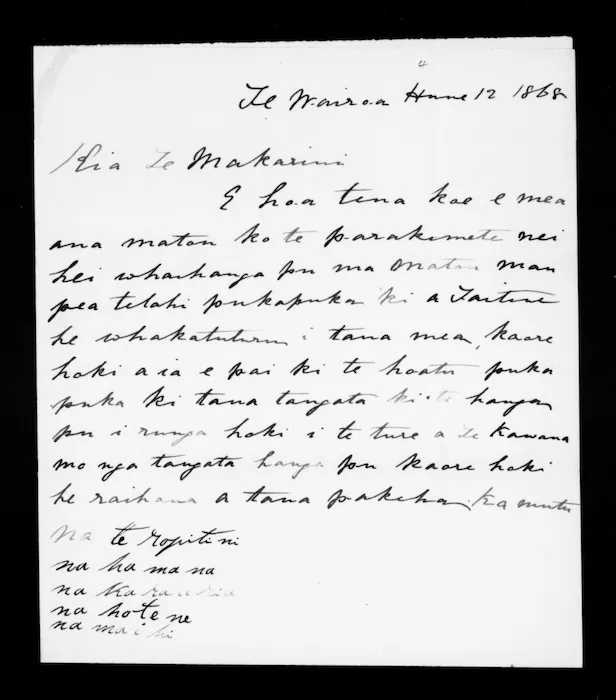 Te Wairoa Hune 12 1868
Kia Te Makarini
E hoa tena koe e mea
ana matou ko te parakimete nei
hei whaihanga pu ma matou mau
pea tetahi pukapuka ki a Taitine
he whakatuturu i tana mea, kaore
hoki a ia e pai ki te hoatu puka
puka ki tana tangata ki te hanga
pu i runga hoki i te ture a Te Kawana
mo nga tangata hanga pu kaore hoki
he raihana a tana pakeha. Ka mutu
na te ropitini
na ha ma na
na Karauria
na hote ne
na ma i hi